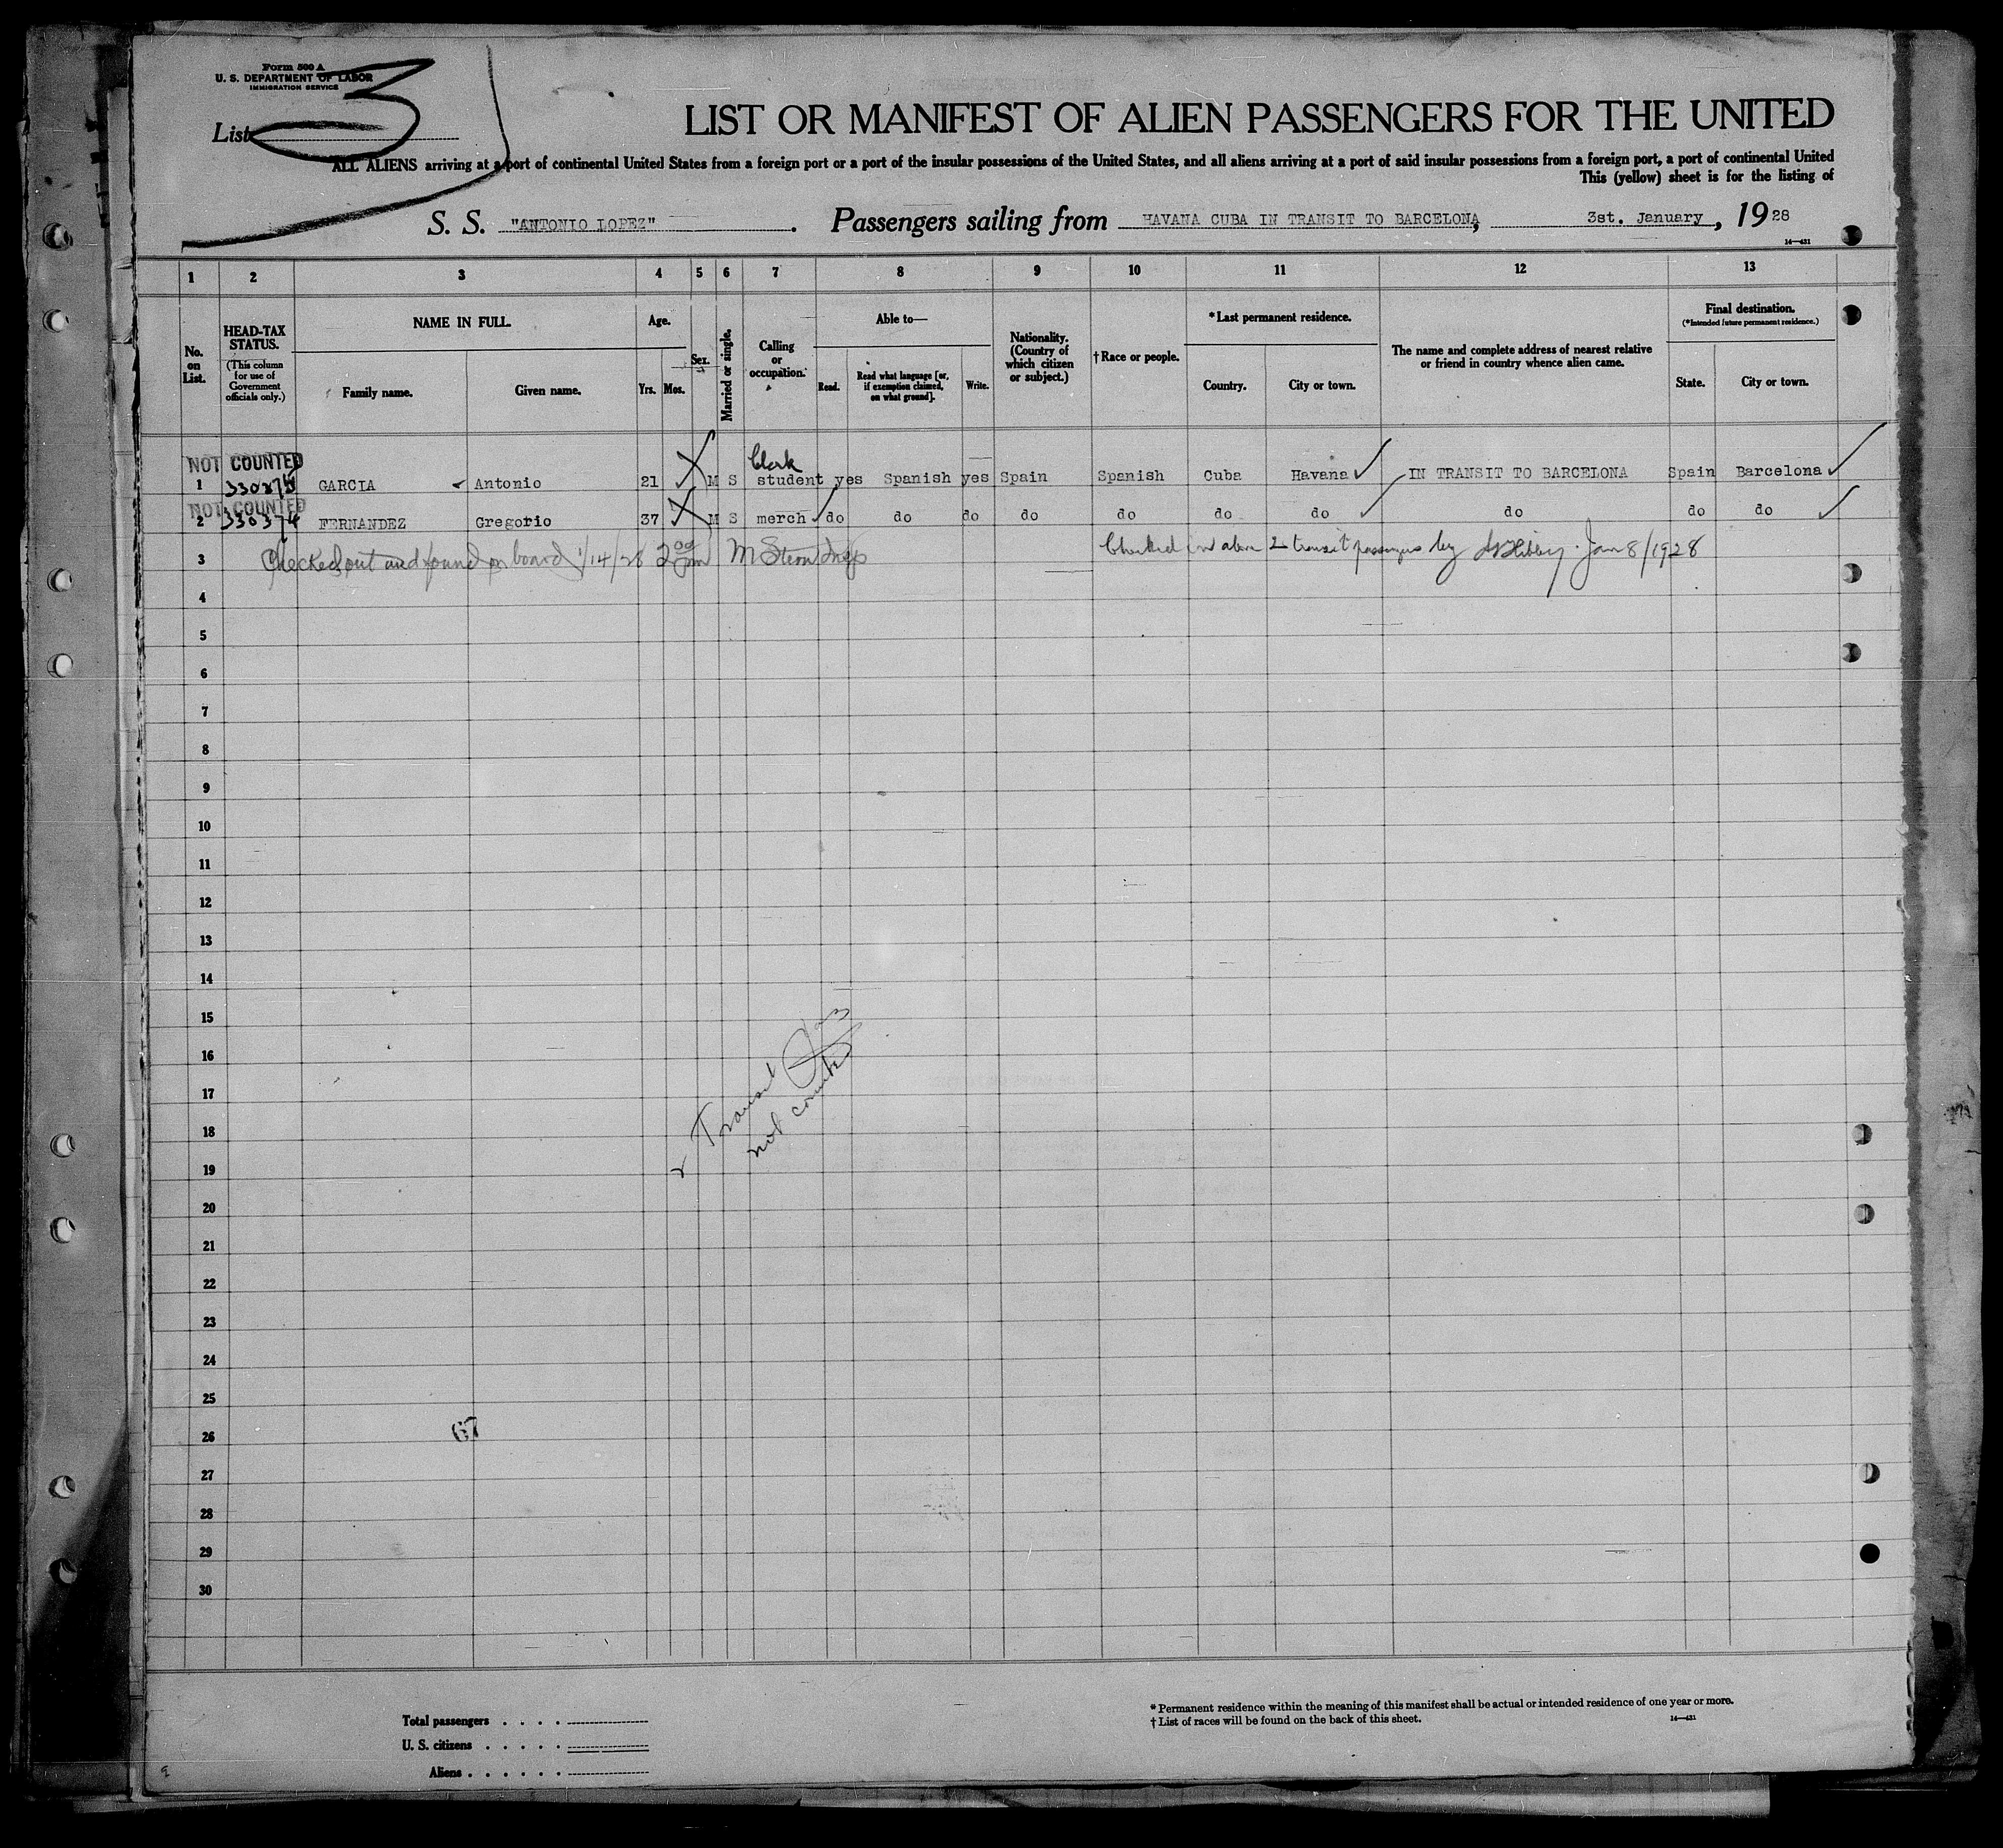 Form 500 A
U. S. DEPARTMENT OF LABOR
IMMIGRATION SERVICE
List 3
LIST OR MANIFEST OF ALIEN PASSENGERS FOR THE UNITED
ALL ALIENS arriving at a port of continental United States from a foreign port or a port of the insular possessions of the United States, and all aliens arriving at a port of said insular possessions from a foreign port, a port of continental United
This (yellow) sheet is for the listing of
S. S. "ANTONIO LOPEZ". Passengers sailing from HAVANA CUBA IN TRANSIT TO BARCELONA, 3st. January, 1928
14—431
1 2 3 4 5 6 7 8 9 10 11 12 13
No. on List.
HEAD-TAX STATUS.
(This column for use of Government officials only.)
NAME IN FULL.
Family name. Given name.
Age.
Yrs. Mos.
Sex.
Married or single.
Calling or occupation.
Able to—
Read. Read what language [or, if exemption claimed, on what ground]. Write.
Nationality. (Country of which citizen or subject.)
†Race or people.
*Last permanent residence.
Country. City or town.
The name and complete address of nearest relative or friend in country whence alien came.
Final destination.
(*Intended future permanent residence.)
State. City or town.
NOT COUNTED Clerk
1 GARCIA Antonio 21 M S student yes Spanish yes Spain Spanish Cuba Havana IN TRANSIT TO BARCELONA Spain Barcelona
NOT COUNTED
2 330374 FERNANDEZ Gregorio 37 M S merch do do do do do do do do do do
3 Checked out and found on board 1/14/28 2 00 pm Checked and above 2 transit passengers by Jan 8/1928
4
5
6
7
8
9
10
11
12
13
14
15
16
17
18
19
20
21
22
23
24
25
26
27
28
29
30
2 Transit
not counted
67
Total passengers . . . .
U. S. citizens . . . . .
Aliens . . . . . .
* Permanent residence within the meaning of this manifest shall be actual or intended residence of one year or more.
† List of races will be found on the back of this sheet. 14—431